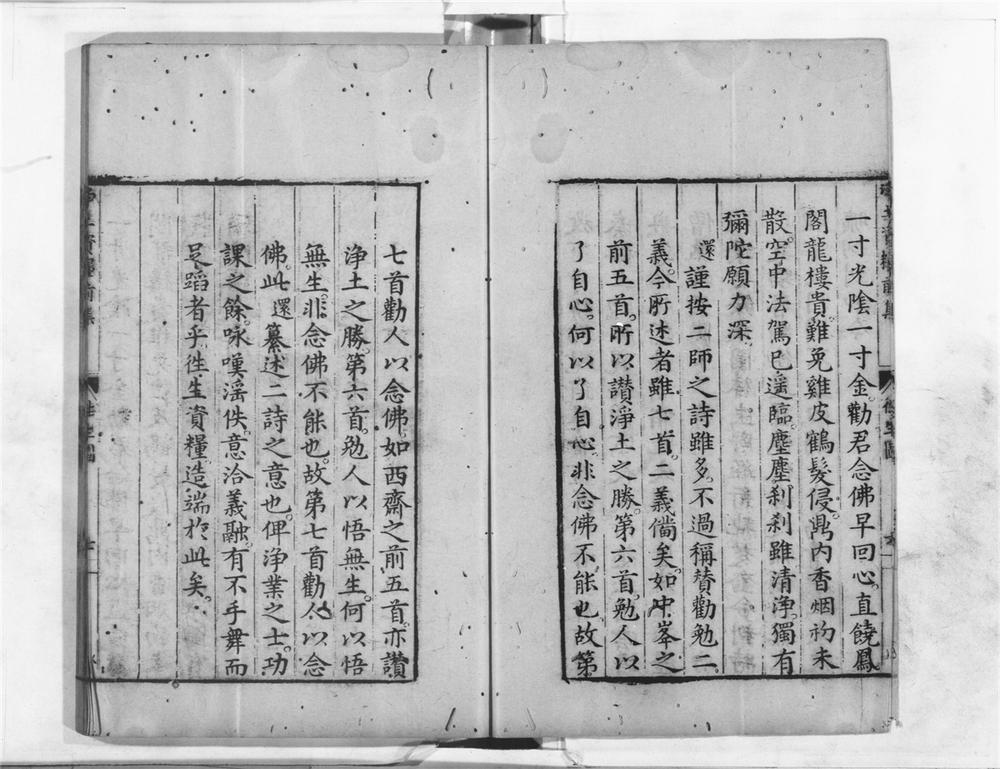 一寸光陰一寸金。勸君念佛早回心。直饒鳳
閣龍樓貴。難免雞皮鶴髮侵。鼎内香烟初未
散。空中法駕巳遥臨。塵塵刹刹雖清淨。獨有
彌陀願力深。
還謹按二師之詩雖多。不過稱賛勸勉二
義。今所述者雖七首。二義備矣。如中峯之
前五首。所以讃淨土之勝。第六首。勉人以
了自心。何以了自心。非念佛不能也。故第
七首勸人以念佛。如西齋之前五首。亦讃
淨土之勝。第六首。勉人以悟無生。何以悟
無生。非念佛不能也。故第七首勸人以念
佛。此還纂述二詩之意也。俾淨業之士。功
課之餘。咏嘆滛佚。意洽義融。有不手舞而
足蹈者乎。徃生資糧。造端於此矣。